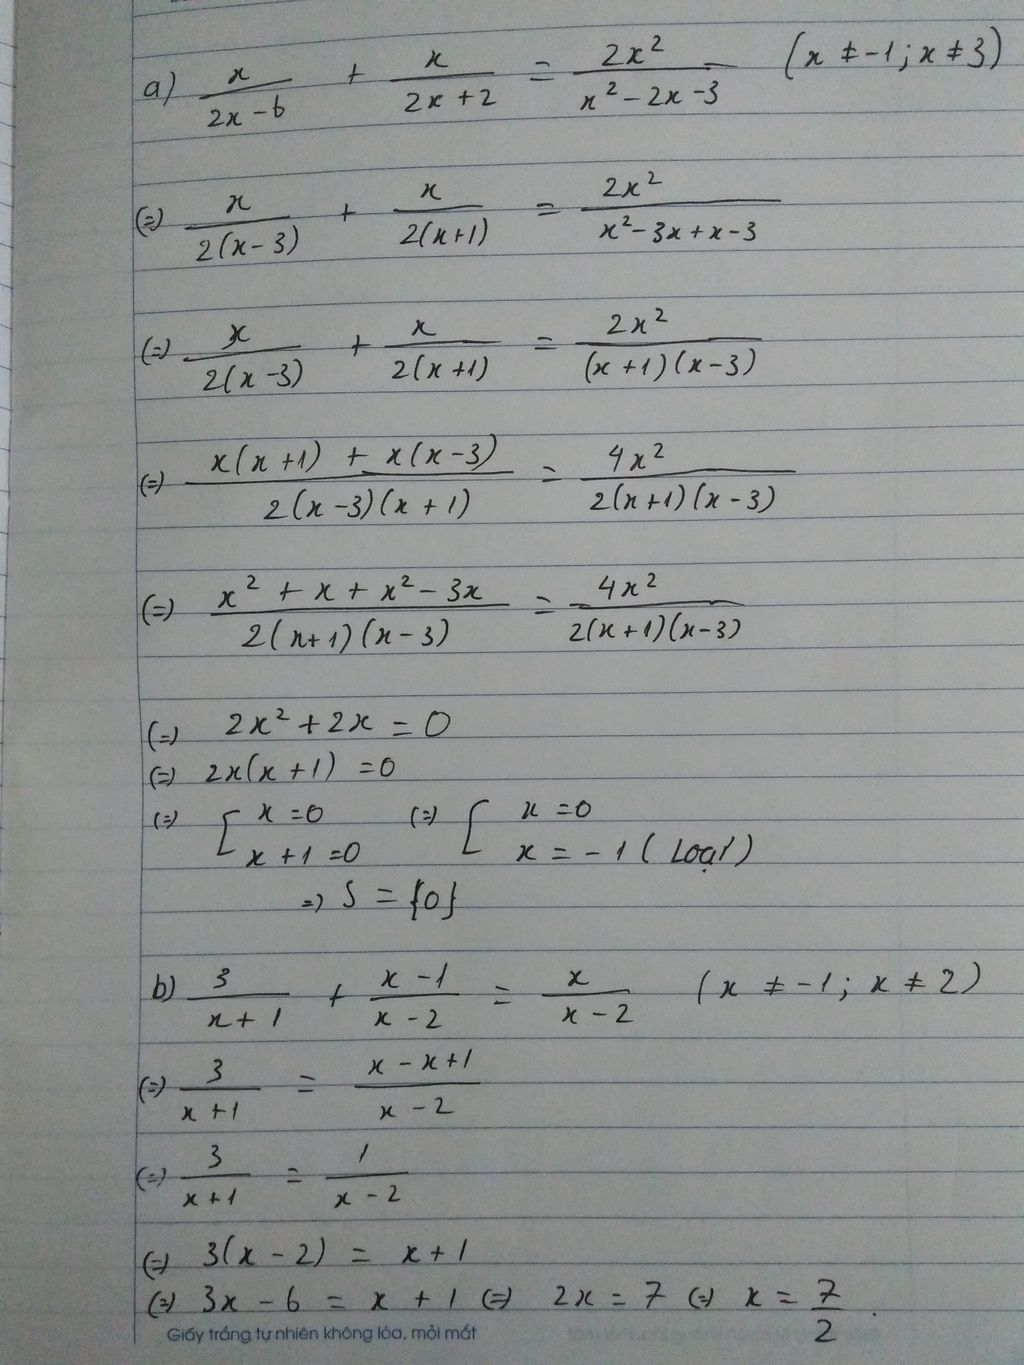 a) x/(2x-6) + x/(2x+2) = 2x²/(x²-2x-3) (x ≠ -1; x ≠ 3)
(=) x/(2(x-3)) + x/(2(x+1)) = 2x²/(x²-3x+x-3)
(=) x/(2(x-3)) + x/(2(x+1)) = 2x²/((x+1)(x-3))
(=) (x(x+1) + x(x-3))/(2(x-3)(x+1)) = 4x²/(2(x+1)(x-3))
(=) (x² + x + x² - 3x)/(2(x+1)(x-3)) = 4x²/(2(x+1)(x-3))
(=) 2x² + 2x = 0
(=) 2x(x+1) = 0
(=) [ x = 0 (=) [ x = 0
x + 1 = 0 x = -1 (Loại)
=) S = {0}
b) 3/(x+1) + (x-1)/(x-2) = x/(x-2) (x ≠ -1; x ≠ 2)
(=) 3/(x+1) = (x-x+1)/(x-2)
(=) 3/(x+1) = 1/(x-2)
(=) 3(x-2) = x+1
(=) 3x - 6 = x + 1 (=) 2x = 7 (=) x = 7/2.
Giấy trắng tự nhiên không lóa, mỏi mắt